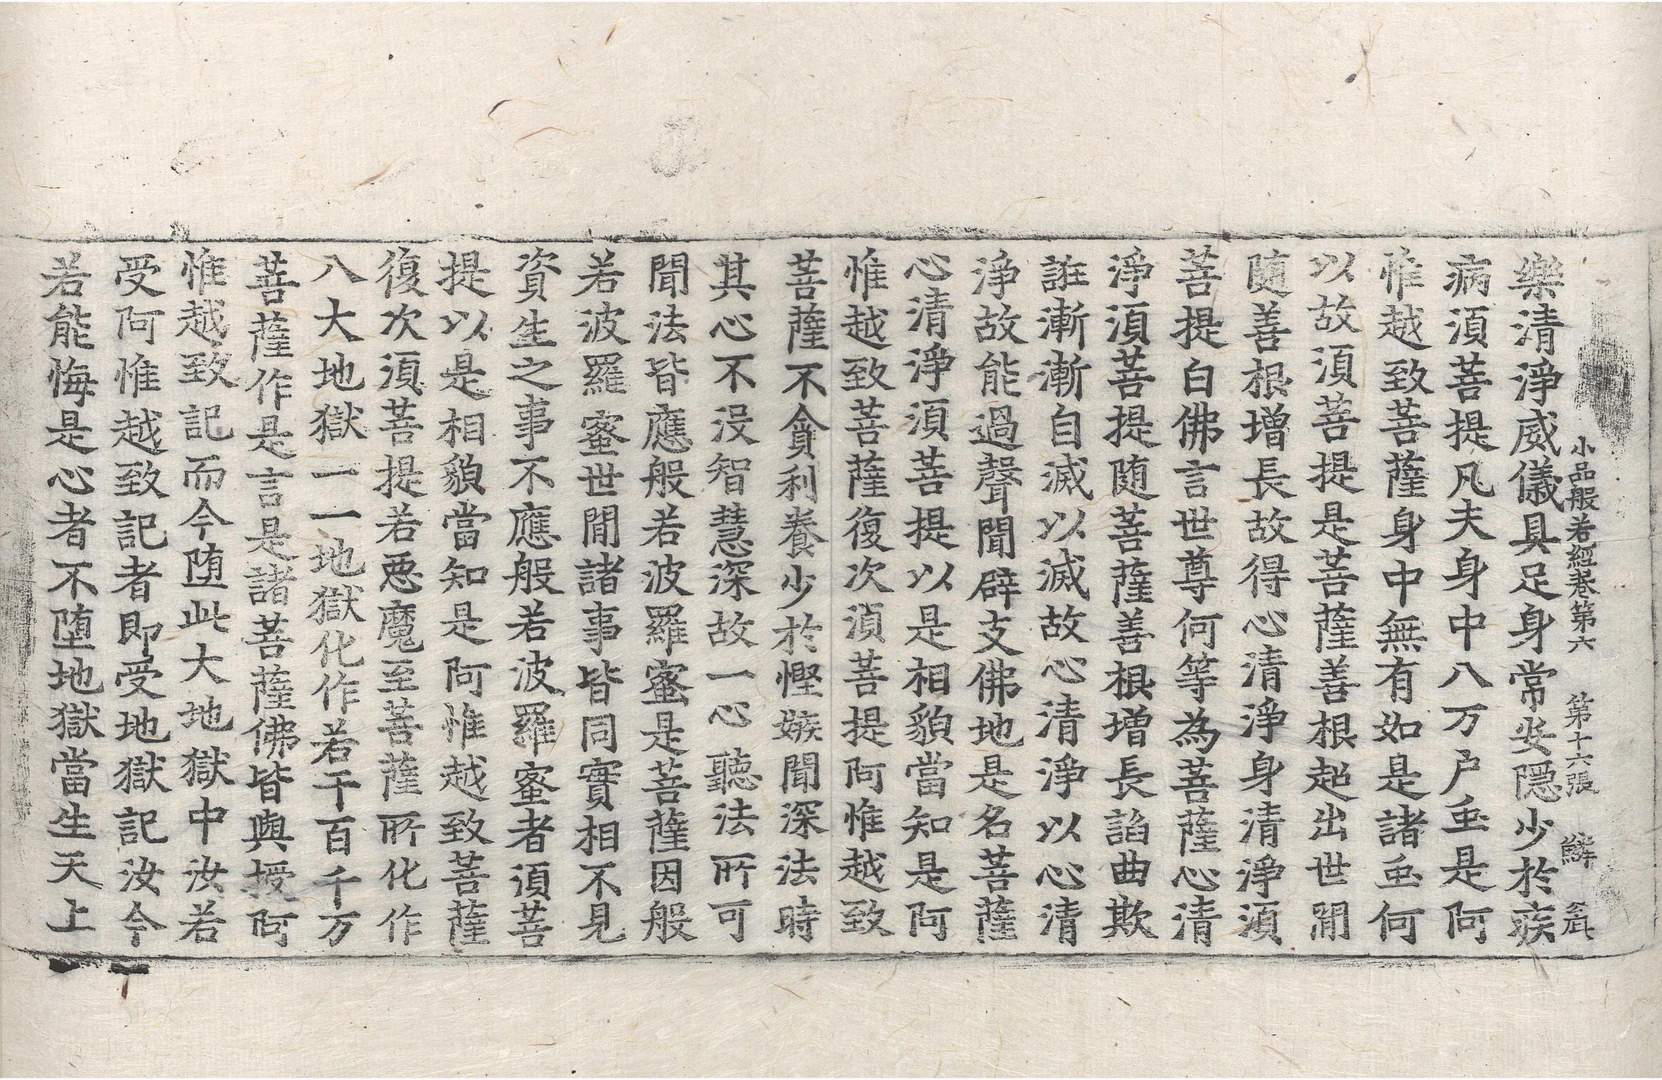 小品般若經卷第六 第十六張 鱗
樂清淨威儀具足身常安隱少於疾
病湏菩提凡夫身中八万户虫是阿
惟越致菩薩身中無有如是諸虫何
以故湏菩提是菩薩善根超出世閒
随善根增長故得心清淨身清淨湏
菩提白佛言世尊何等為菩薩心清
淨湏菩提随菩薩善根增長諂曲欺
誑漸漸自滅以滅故心清淨以心清
淨故能過聲聞辟支佛地是名菩薩
心清淨湏菩提以是相貌當知是阿
惟越致菩薩復次湏菩提阿惟越致
菩薩不貪利養少於慳嫉聞深法時
其心不没智慧深故一心聽法所可
聞法皆應般若波羅蜜是菩薩因般
若波羅蜜世閒諸事皆同實相不見
資生之事不應般若波羅蜜者湏菩
提以是相貌當知是阿惟越致菩薩
復次湏菩提若惡魔至菩薩所化作
八大地獄一一地獄化作若干百千万
菩薩作是言是諸菩薩佛皆與授阿
惟越致記而今堕此大地獄中汝若
受阿惟越致記者即受地獄記汝今
若能悔是心者不堕地獄當生天上